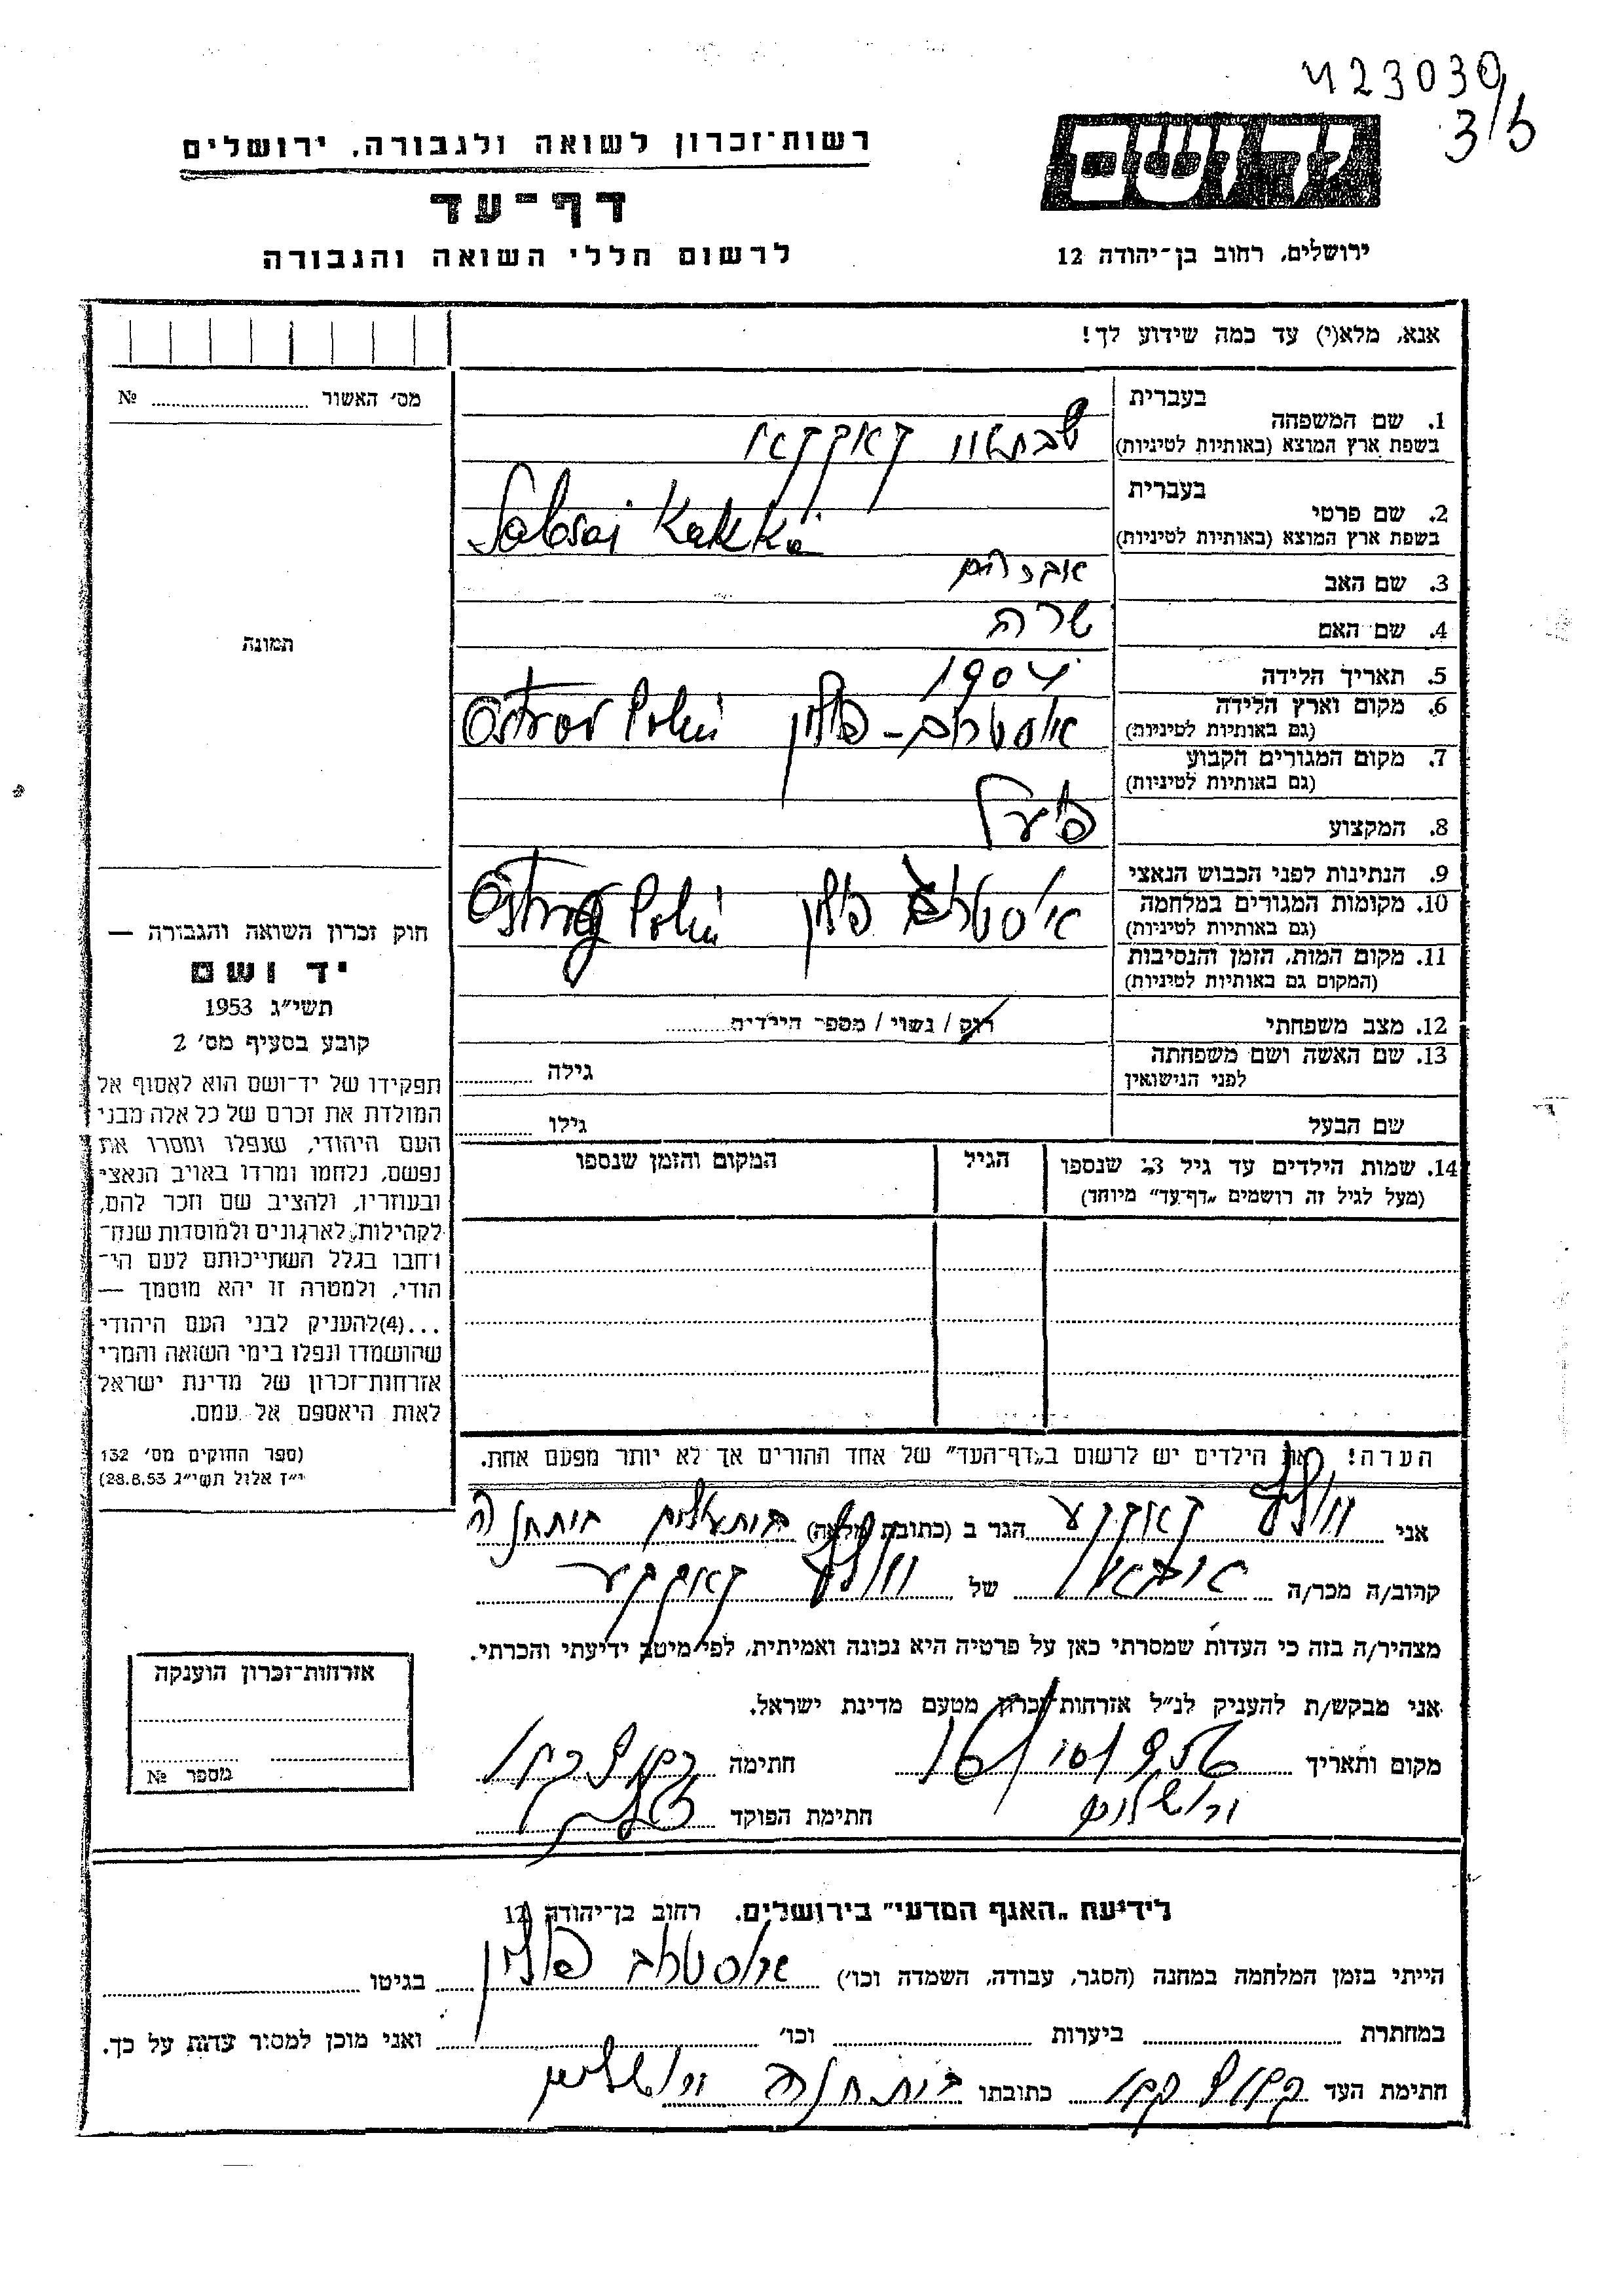 423030
3/5
רשות־זכרון לשואה ולגבורה, ירושלים
דף־עד
לרשום חללי השואה והגבורה
ידושם
ירושלים, רחוב בן־יהודה 12
אנא, מלא(י) עד כמה שידוע לך!
מס׳ האשור № 
תמונה
חוק זכרון השואה והגבורה —
יד ושם
תשי״ג 1953
קובע בסעיף מס׳ 2
תפקידו של יד־ושם הוא לאסוף אל
המולדת את זכרם של כל אלה מבני
העם היהודי, שנפלו ומסרו את
נפשם, נלחמו ומרדו באויב הנאצי
ובעוזריו, ולהציב שם וזכר להם,
לקהילות, לארגונים ולמוסדות שנח־
רבו בגלל השתייכותם לעם הי־
הודי, ולמטרה זו יהא מוסמך —
...(4) להעניק לבני העם היהודי
שהושמדו ונפלו בימי השואה והמרי
אזרחות־זכרון של מדינת ישראל
לאות היאספם אל עמם.
(ספר החוקים מס׳ 132
י״ז אלול תשי״ג 28.8.53)
בעברית
1. שם המשפחה
בשפת ארץ המוצא (באותיות לטיניות)
בעברית
2. שם פרטי Kakka
בשפת ארץ המוצא (באותיות לטיניות)
3. שם האב אברהם
4. שם האם שרה
5. תאריך הלידה 1904
6. מקום וארץ הלידה אוסטרוב - פולין
(גם באותיות לטיניות)
7. מקום המגורים הקבוע
(גם באותיות לטיניות)
8. המקצוע פועל
9. הנתינות לפני הכבוש הנאצי
10. מקומות המגורים במלחמה פולין
(גם באותיות לטיניות)
11. מקום המות, הזמן והנסיבות
(המקום גם באותיות לטיניות)
12. מצב משפחתי רוק / נשוי / מספר הילדים
13. שם האשה ושם משפחתה גילה
לפני הנישואין
שם הבעל גילו
14. שמות הילדים עד גיל 13 שנספו הגיל המקום והזמן שנספו
(מעל לגיל זה רושמים „דף־עד״ מיוחד)
הערה! את הילדים יש לרשום ב„דף־העד״ של אחד ההורים אך לא יותר מפעם אחת.
אני הגר ב (כתובת מלאה)
קרוב/ה מכר/ה של
מצהיר/ה בזה כי העדות שמסרתי כאן על פרטיה היא נכונה ואמיתית, לפי מיטב ידיעתי והכרתי.
אני מבקש/ת להעניק לנ״ל אזרחות־זכרון מטעם מדינת ישראל.
מקום ותאריך חתימה
ירושלים חתימת הפוקד
אזרחות־זכרון הוענקה
מספר №
לידיעת „האגף המדעי״ בירושלים, רחוב בן־יהודה 12
הייתי בזמן המלחמה במחנה (הסגר, עבודה, השמדה וכו׳) אוסטרוב פולין בגיטו
במחתרת ביערות וכו׳ ואני מוכן למסור עדות על כך.
חתימת העד כתובתו ירושלים